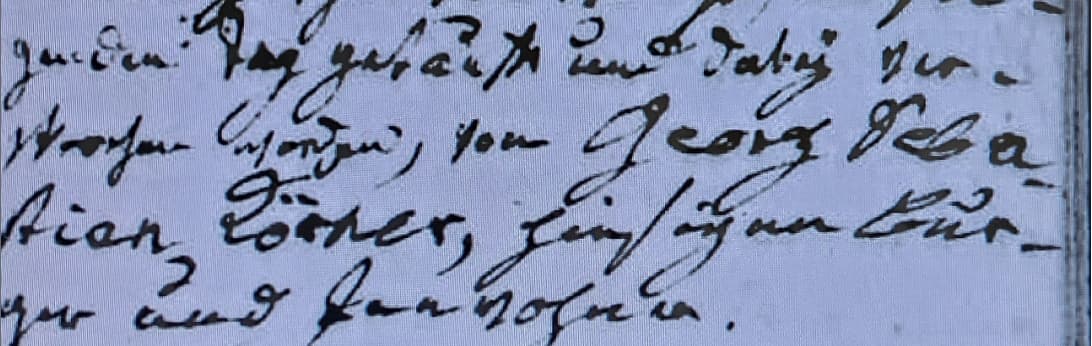 genden Tag getauft und dabeÿ ver-
sprochen worden, von Georg Seba-
stian Körner, hiesigen Bür-
ger und Innwohner.